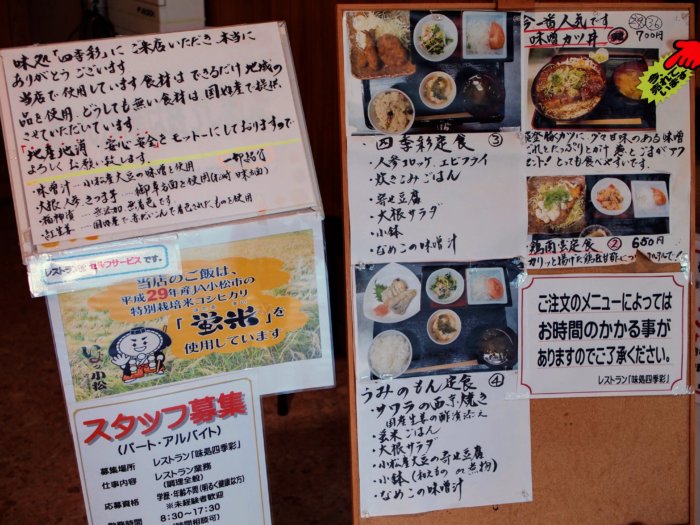 味処「四季彩」にご来店いただき、本当に
ありがとうございます
当店で使用しています食材は、できるだけ地域の
品を使用、どうしても無い食材は、国内産で提供
させていただいています
「地産地消、安心安全」をモットーにしておりますので
よろしくお願い致します。
一部紹介
・味噌汁
・大根、人参、さつま芋
・福神漬
・紅生姜
レストランはセルフサービスです。
当店のご飯は、
平成29年産JA小松市の
特別栽培米コシヒカリ
「蛍米」を
使用しています
スタッフ募集
(パート・アルバイト)
募集場所 レストラン「味処四季彩」
仕事内容 レストラン業務
(調理全般)
応募資格 学歴・年齢不問(明るく健康な方)
※未経験者歓迎
8:30~17:30
四季彩定食 ③
・人参コロッケ、エビフライ
・炊きこみごはん
・寄せ豆腐
・大根サラダ
・小鉢
・なめこの味噌汁
うみのもん定食 ④
・サワラの西京焼き
国産生姜の酢漬添え
・玄米ごはん
・大根サラダ
・小松産大豆の寄せ豆腐
・小鉢(和えもの or 煮物)
・なめこの味噌汁
今一番人気です
味噌カツ丼 700円
・鶏肉定食 ② 650円
ご注文のメニューによっては
お時間のかかる事が
ありますのでご了承ください。
レストラン「味処四季彩」